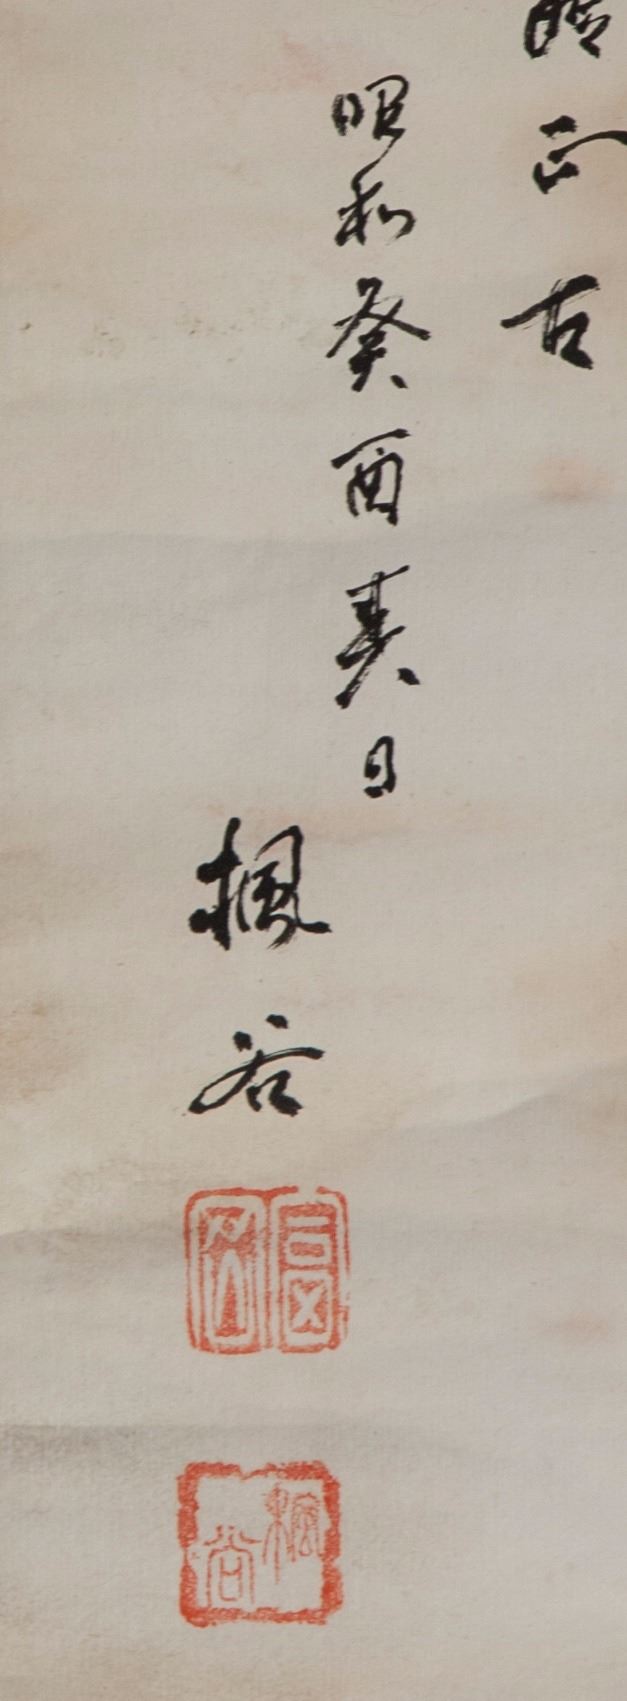 正古
昭和癸酉春日
楓谷
楓谷